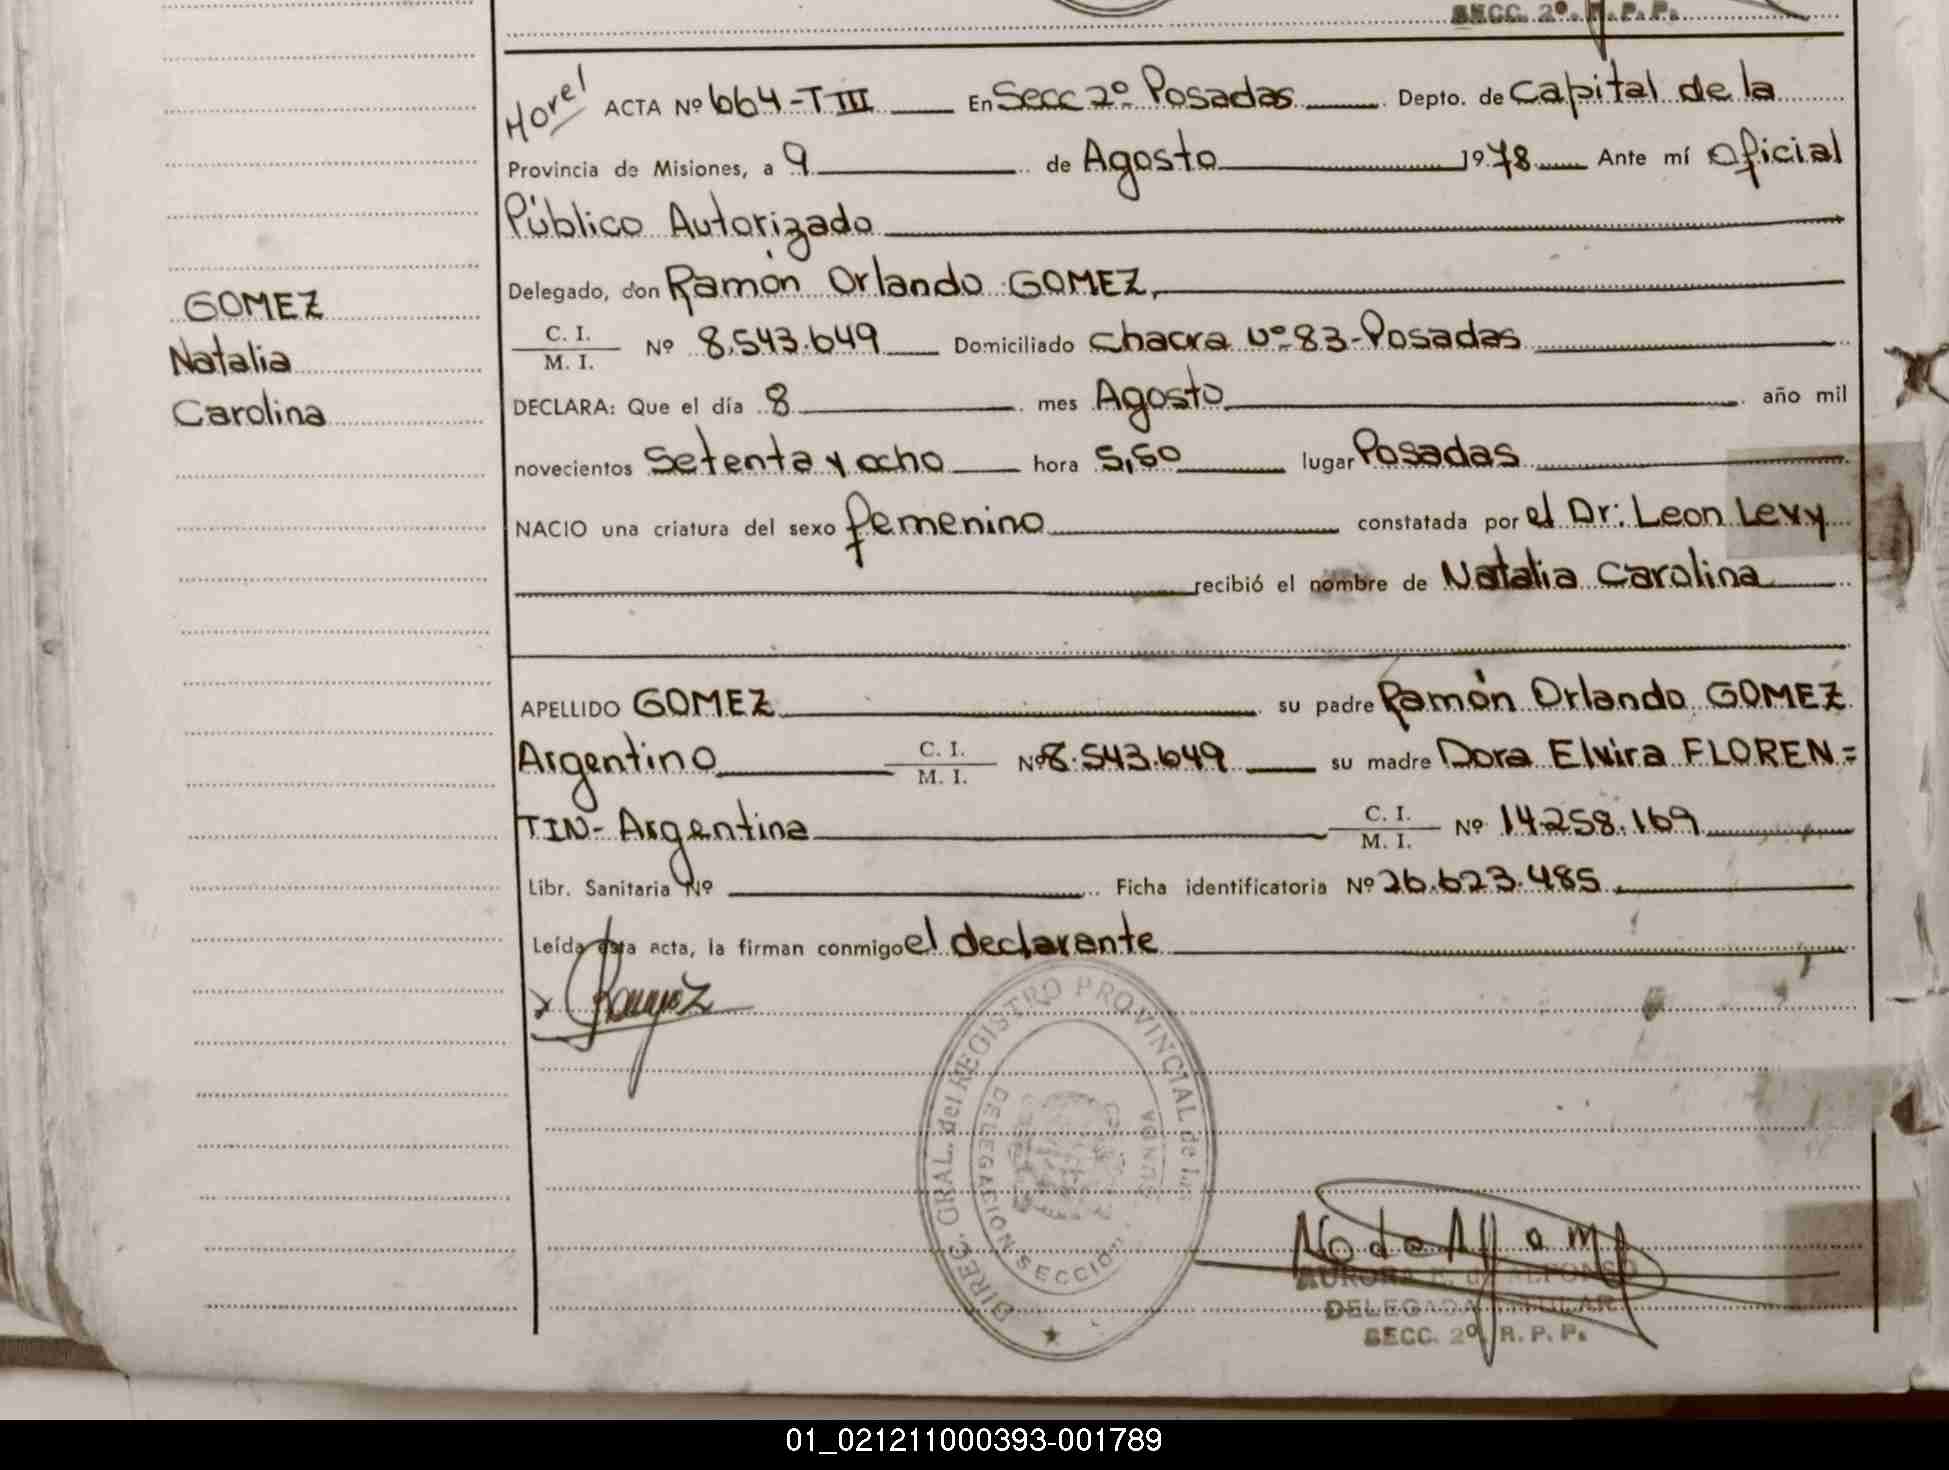 SECC. 2º. R. P. P.
Horel ACTA Nº 664-T III En Secc 2º Posadas Depto. de Capital de la
Provincia de Misiones, a 9 de Agosto 1978 Ante mí Oficial
Público Autorizado
Delegado, don Ramón Orlando GOMEZ,
C. I.
M. I. Nº 8.543.649 Domiciliado Chacra Nº 83-Posadas
DECLARA: Que el día 8 mes Agosto año mil
novecientos Setenta y ocho hora 5,50 lugar Posadas
NACIO una criatura del sexo femenino constatada por el Dr: Leon Levy
recibió el nombre de Natalia Carolina
GOMEZ
Natalia
Carolina
APELLIDO GOMEZ su padre Ramón Orlando GOMEZ
Argentino C. I.
M. I. Nº 8.543.649 su madre Dora Elvira FLOREN=
TIN-Argentina C. I.
M. I. Nº 14.258.169
Libr. Sanitaria Nº Ficha identificatoria Nº 26.623.485
Leída esta acta, la firman conmigo el declarante
DIREC. GRAL. del REGISTRO PROVINCIAL de las
DELEGACION SECCION
AURORA E. de ALFONSO
DELEGADA TITULAR
SECC. 2º R. P. P.
01_021211000393-001789